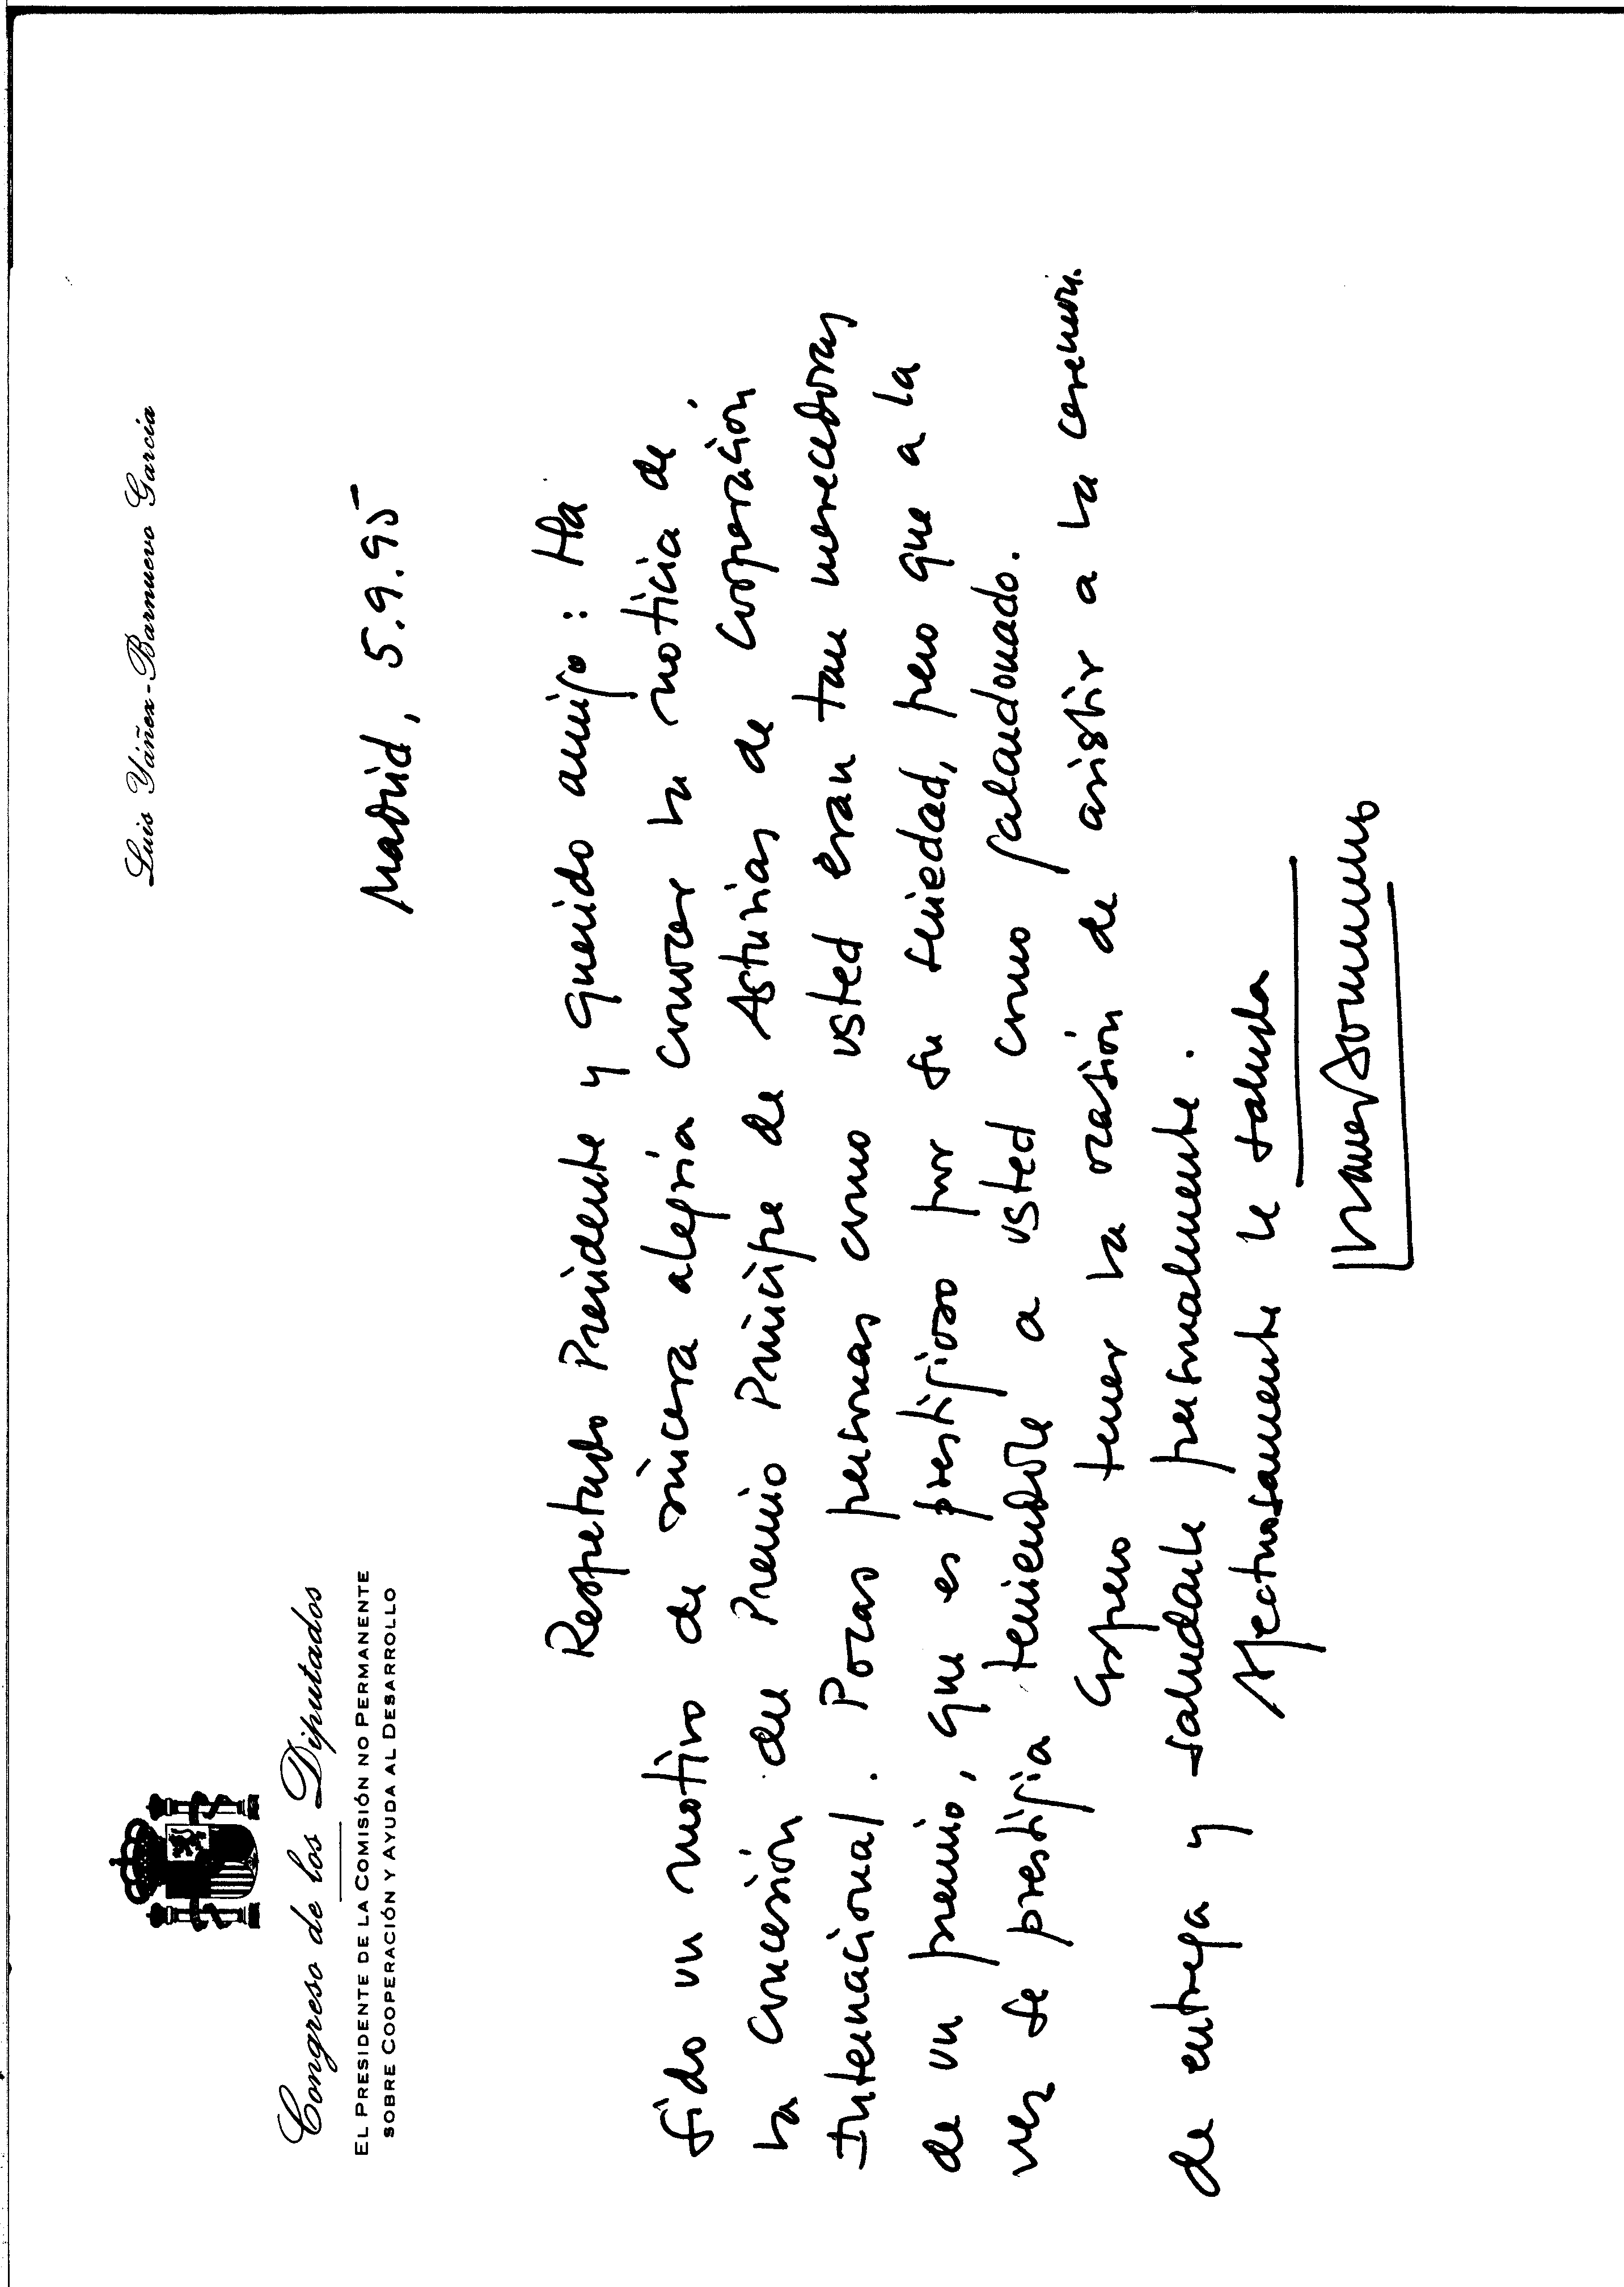 Congreso de los Diputados
EL PRESIDENTE DE LA COMISIÓN NO PERMANENTE
SOBRE COOPERACIÓN Y AYUDA AL DESARROLLO
Luis Yáñez-Barnuevo García
Madrid, 5.9.95
Respetado Presidente y querido amigo: Ha
sido un motivo de sincera alegría conocer la noticia de
la concesión del Premio Príncipe de Asturias de Cooperación
Internacional. Pocas personas como usted eran tan merecedoras
de un premio, que es prestigioso por su seriedad, pero que a la
vez se prestigia teniéndole a usted como galardonado.
Espero tener la ocasión de asistir a la ceremon.
de entrega y saludarle personalmente.
Afectuosamente le saluda